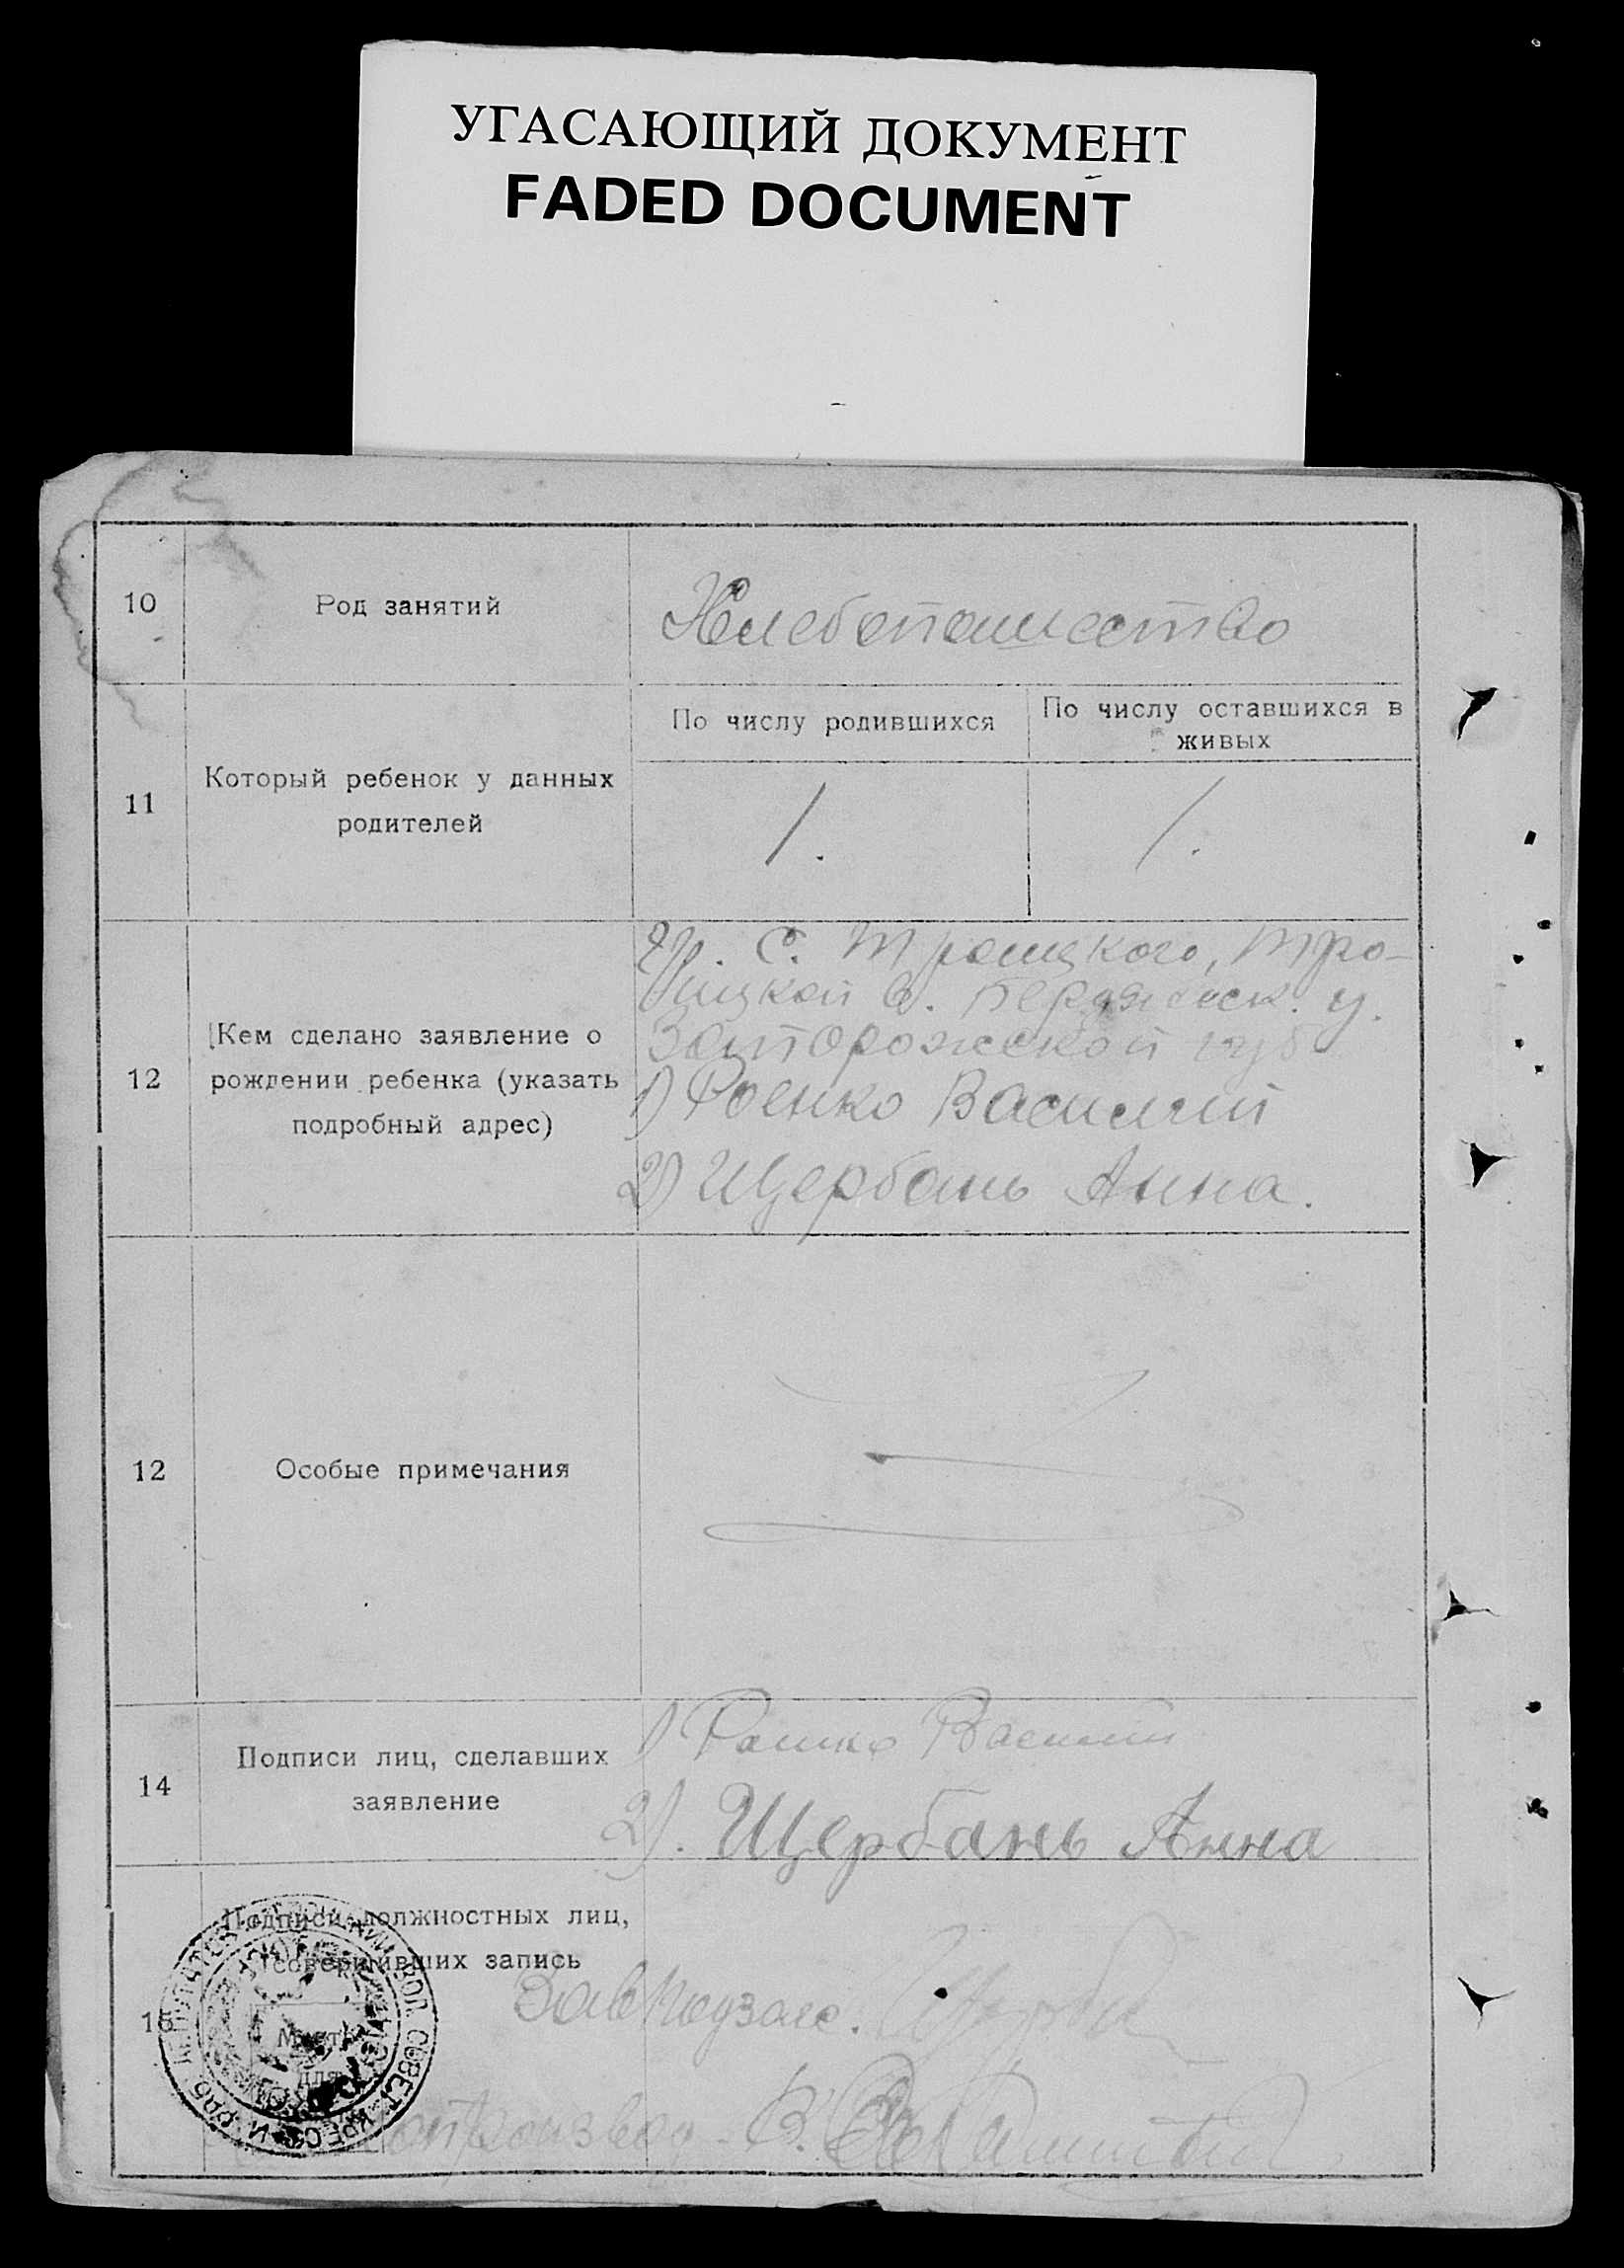 УГАСАЮЩИЙ ДОКУМЕНТ
FADED DOCUMENT
10
Род занятий
Хлебопашество
11
Который ребенок у данных
родителей
По числу родившихся
По числу оставшихся в
живых
1.
1.
12
Кем сделано заявление о
рождении ребенка (указать
подробный адрес)
Гр. С. Троицкого, Тро-
ицкой в. Бердянск. у.
Запорожской губ
1) Роенко Василий
2) Щербань Анна.
12
Особые примечания
14
Подписи лиц, сделавших
заявление
1) Роенко Василий
2). Щербань Анна
15
Подписи должностных лиц,
совершивших запись
Место
для
Завподзагс.